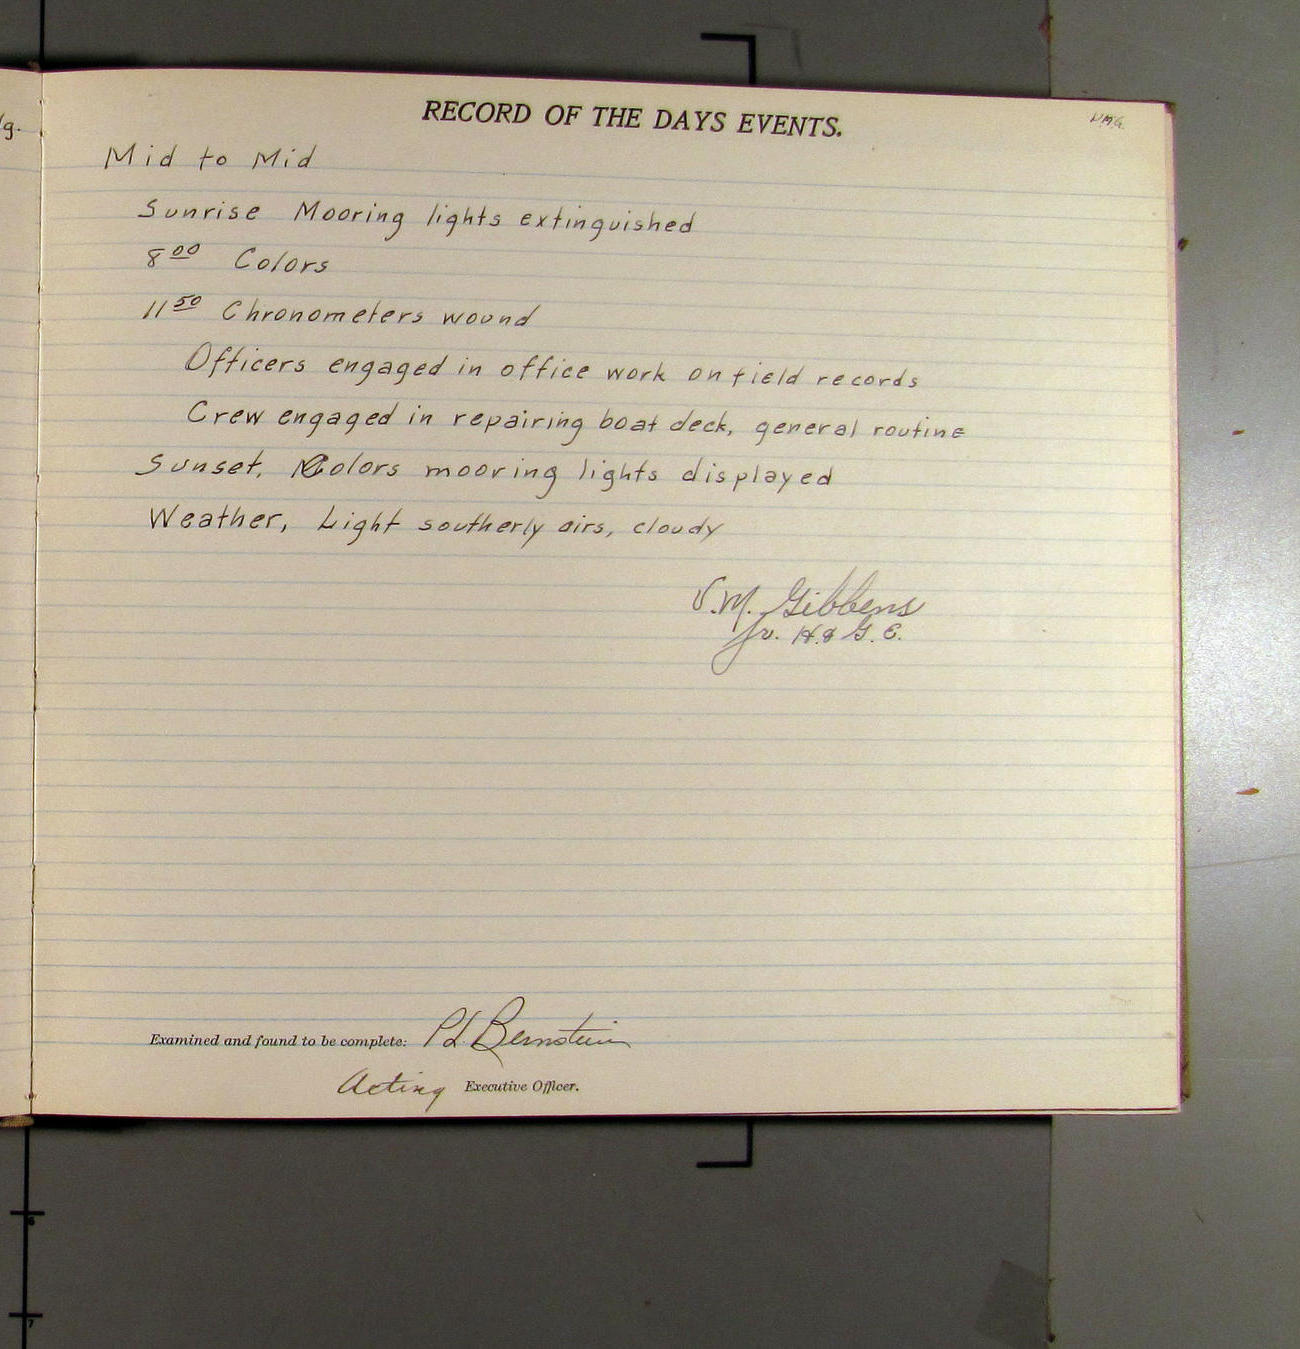 RECORD OF THE DAYS EVENTS.
V.M.G.
Mid to Mid
Sunrise Mooring lights extinguished
8⁰⁰ Colors
11⁵⁰ Chronometers wound
Officers engaged in office work on field records
Crew engaged in repairing boat deck, general routine
Sunset, Colors mooring lights displayed
Weather, Light southerly airs, cloudy
V.M. Gibbens
Jr. H. & G. E.
Examined and found to be complete: P.L. Bernstein
Acting Executive Officer.
6
7